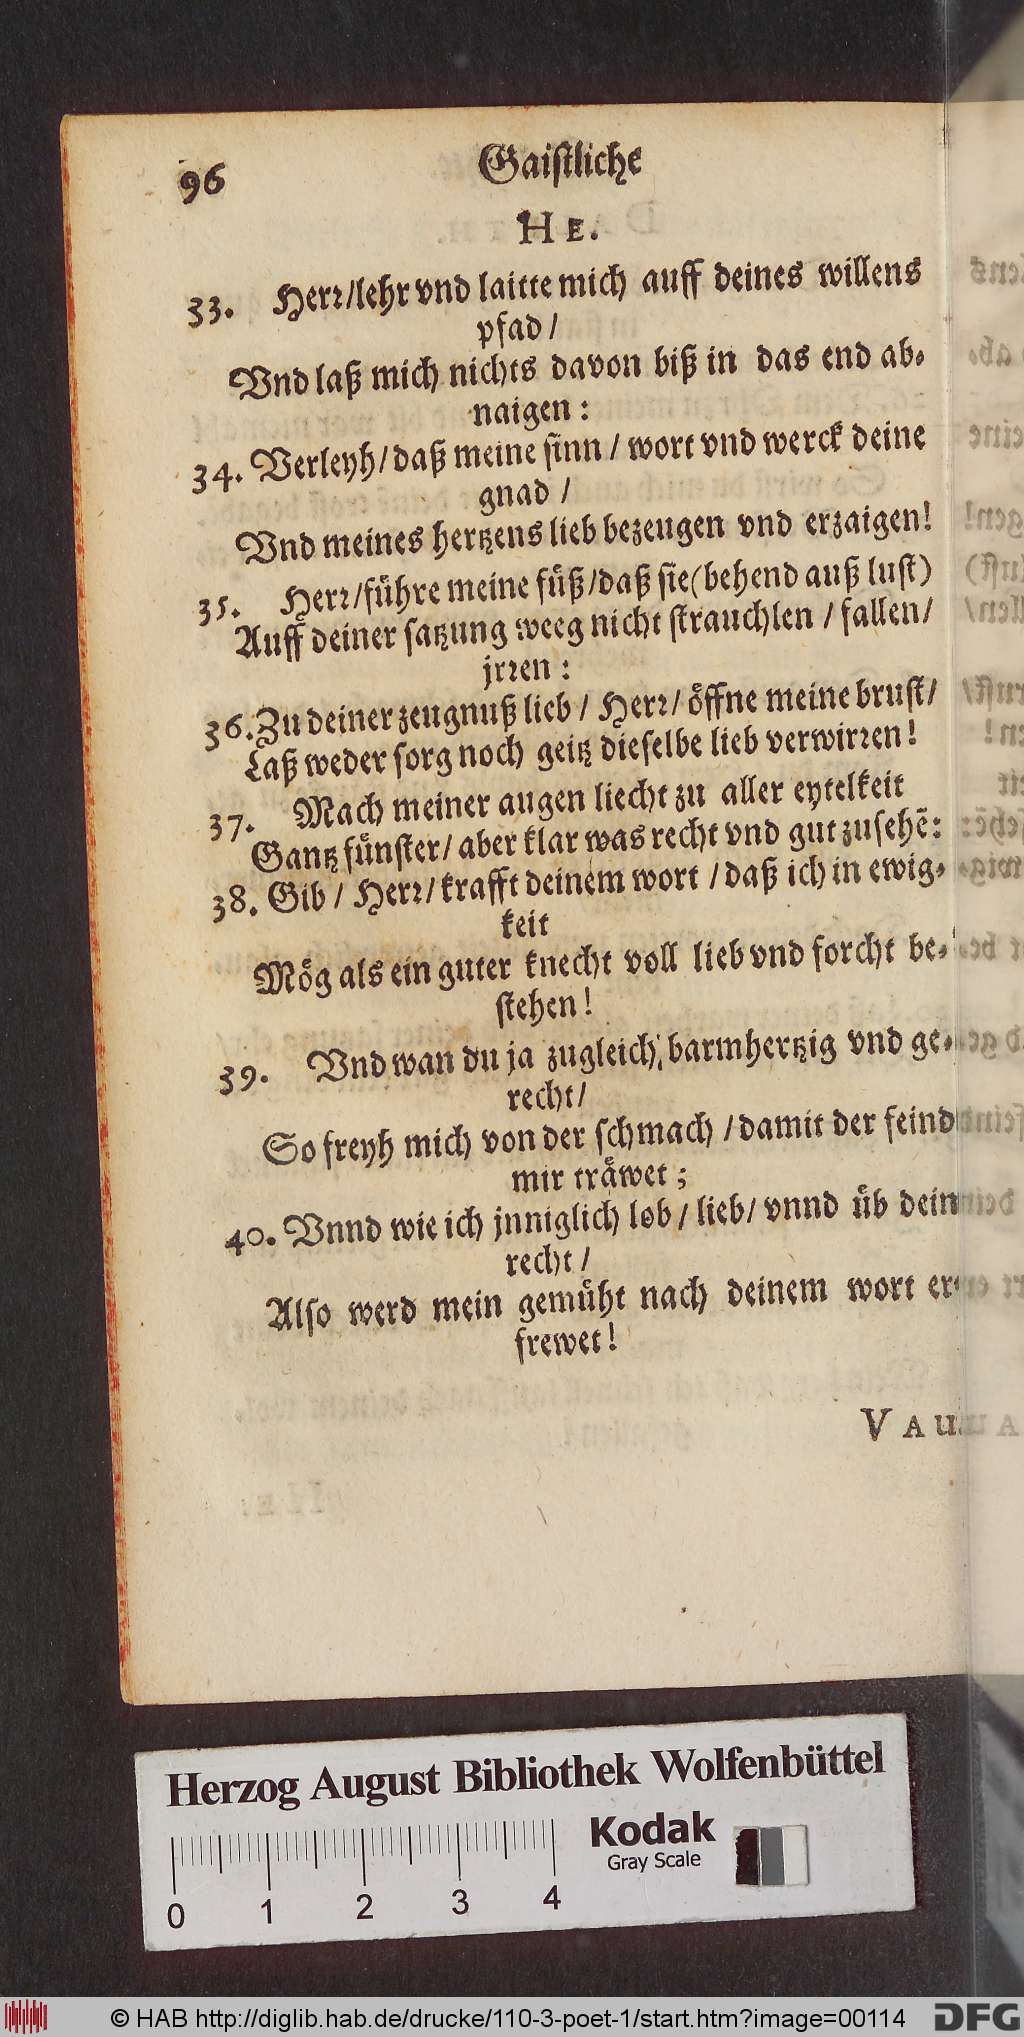 96
Gaistliche
HE.
33. Herr/lehr vnd laitte mich auff deines willens
pfad /
Vnd laß mich nichts davon biß in das end ab-
naigen :
34. Verleyh/daß meine sinn / wort vnd werck deine
gnad /
Vnd meines hertzens lieb bezeugen vnd erzaigen!
35. Herr/führe meine füß/daß sie(behend auß lust)
Auff deiner satzung weeg nicht strauchlen / fallen/
jrren :
36. Zu deiner zeugnuß lieb / Herr/ öffne meine brust/
Laß weder sorg noch geitz dieselbe lieb verwirren!
37. Mach meiner augen liecht zu aller eytelkeit
Gantz fünster/ aber klar was recht vnd gut zusehē:
38. Gib / Herr/krafft deinem wort /daß ich in ewig-
keit
Mög als ein guter knecht voll lieb vnd forcht be-
stehen!
39. Vnd wan du ja zugleich barmhertzig vnd ge-
recht/
So freyh mich von der schmach /damit der feind
mir träwet ;
40. Vnnd wie ich jnniglich lob / lieb/ vnnd üb dein
recht /
Also werd mein gemüht nach deinem wort er-
frewet!
VAU
Herzog August Bibliothek Wolfenbüttel
Kodak
Gray Scale
0 1 2 3 4
© HAB http://diglib.hab.de/drucke/110-3-poet-1/start.htm?image=00114
DFG